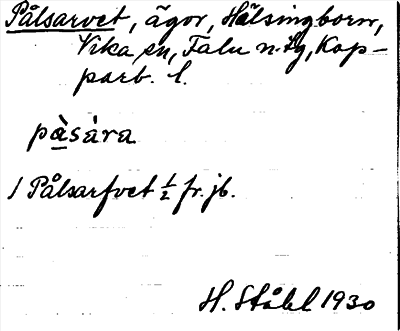 Pålsarvet, ägor, Hälsingborn,
Vika sn, Falu n. lg, Kop-
parb. l.
pàsára
1 Pålsarfvet ½ fr. jb.
H. Ståhl 1930